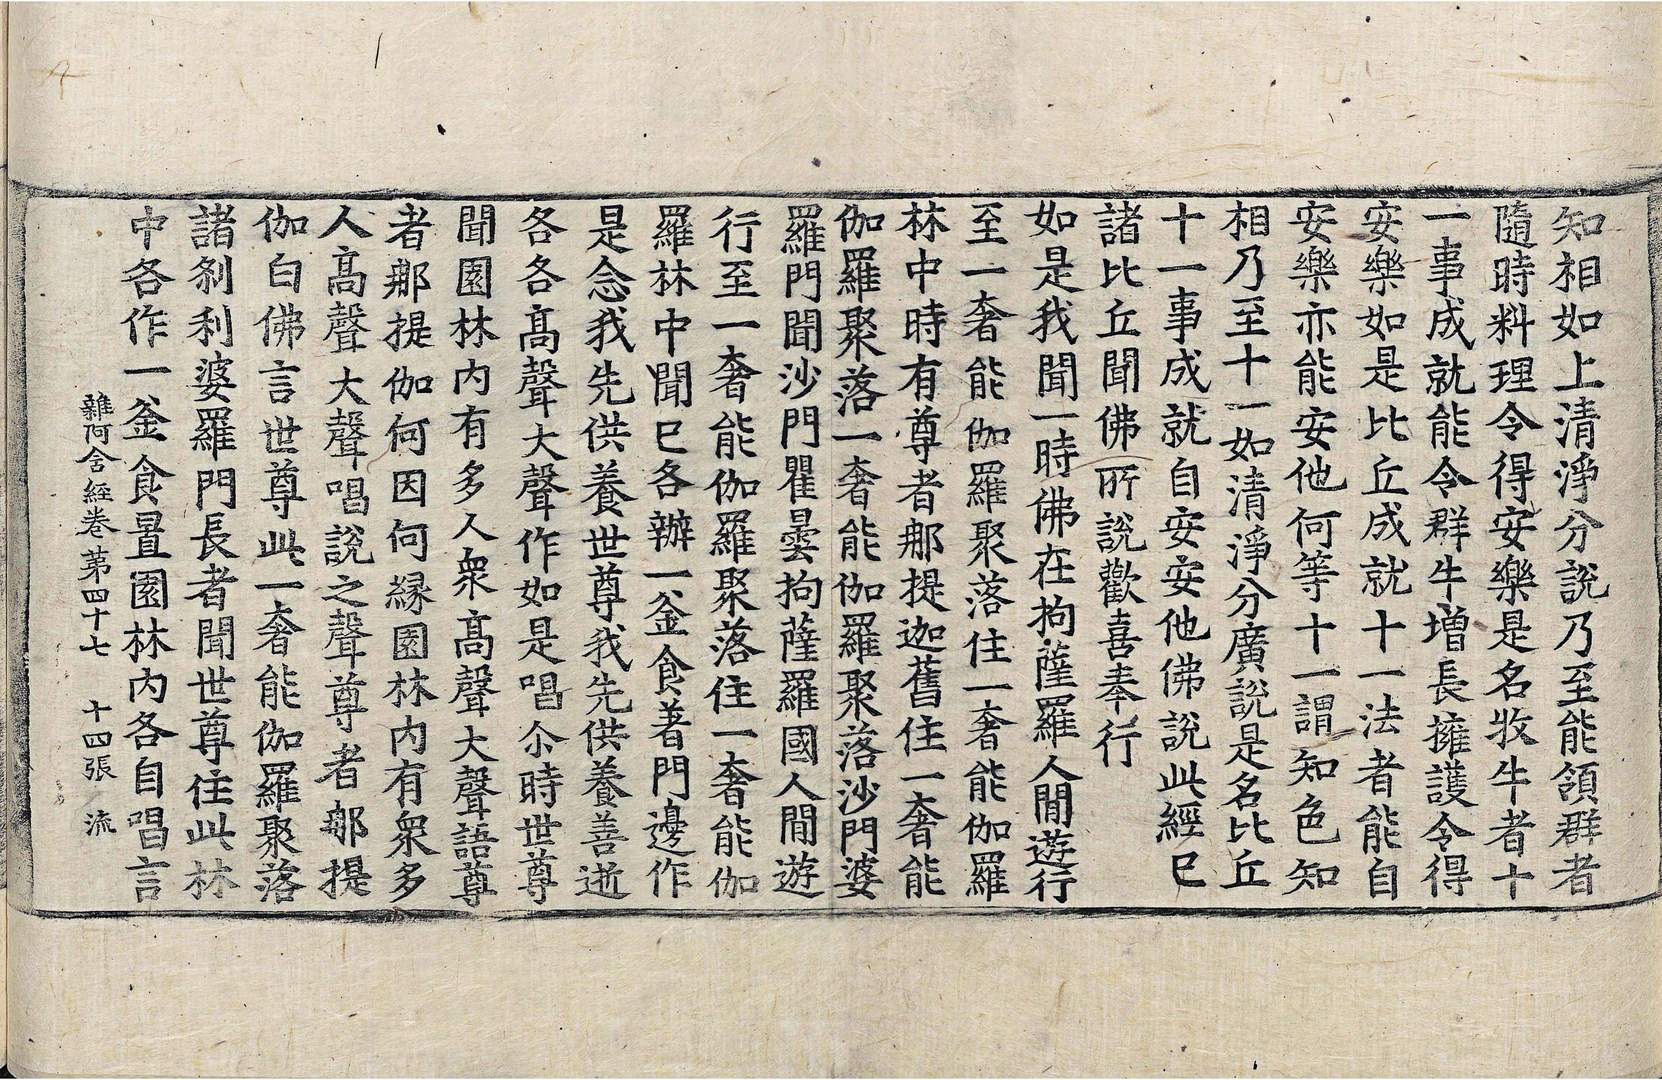 知相如上清淨分說乃至能領群者
隨時料理令得安樂是名牧牛者十
一事成就能令群牛增長擁護令得
安樂如是比丘成就十一法者能自
安樂亦能安他何等十一謂知色知
相乃至十一如清淨分廣說是名比丘
十一事成就自安安他佛說此經已
諸比丘聞佛所說歡喜奉行
如是我聞一時佛在拘薩羅人閒遊行
至一奢能伽羅聚落住一奢能伽羅
林中時有尊者那提迦舊住一奢能
伽羅聚落一奢能伽羅聚落沙門婆
羅門聞沙門瞿曇拘薩羅國人閒遊
行至一奢能伽羅聚落住一奢能伽
羅林中聞已各辦一釜食著門邊作
是念我先供養世尊我先供養善逝
各各高聲大聲作如是唱尒時世尊
聞園林內有多人衆高聲大聲語尊
者那提伽何因何緣園林內有衆多
人高聲大聲唱說之聲尊者那提
伽白佛言世尊此一奢能伽羅聚落
諸剎利婆羅門長者聞世尊住此林
中各作一釜食置園林內各自唱言
雜阿含經卷第四十七 十四張 流